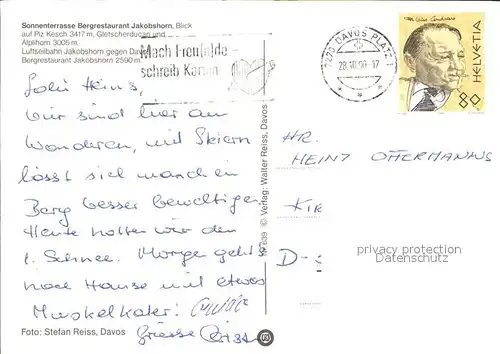 Sonnenterrasse Bergrestaurant Jakobshorn, Blick
auf Piz Kesch 3417 m, Gletscherducan und
Älplihorn 3005 m.
Luftseilbahn Jakobshorn gegen Davos
Bergrestaurant Jakobshorn 2590 m.
Mach Freu(n)de -
schreib Karten
7270 DAVOS PLATZ 1
28.10.90-17
HELVETIA
80
Heinz,
wir sind hier am
Wandern, mit Skiern
lässt sich manchen
Berg besser bewältigen
Heute hatten wir den
1. Schnee. Morgen geht's
nach Hause mit etwas
Muskelkater.
Grüsse
Foto: Stefan Reiss, Davos
© Verlag: Walter Reiss, Davos
HR.
HEINZ OFFERMANNS
D-
privacy protection
Datenschutz